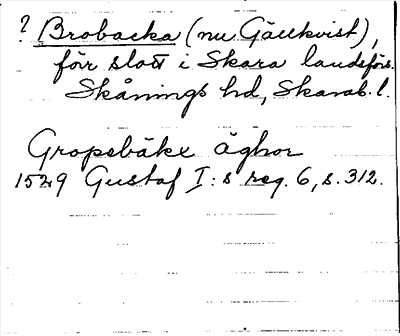 ? Brobacka (nu Gällkvist),
förr slott i Skara landsförs.
Skånings hd, Skarab. l.
Gropebäke äghor
1529 Gustaf I:s reg. 6, s. 312.